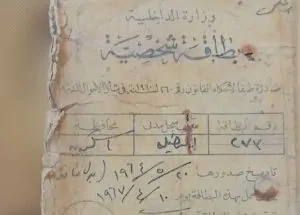 وزارة الداخلية
بطاقة شخصية
صادرة طبقا لأحكام القانون رقم ٢٦٠ لسنة ١٩٦٠ في شأن الأحوال المدنية
رقم البطاقة
مكتب سجل مدنى
محافظة
٢٧٣
تاريخ صدورها ٢٠ / ٥ / ١٩٦٤
بهذه البطاقة يوم ١٠ / ٤ / ١٩٦٧